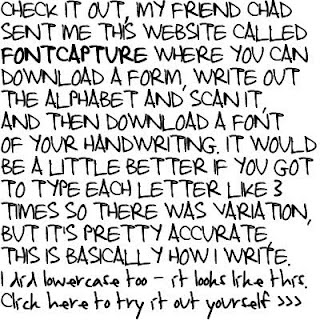 CHECK IT OUT, MY FRIEND CHAD
SENT ME THIS WEBSITE CALLED
FONTCAPTURE WHERE YOU CAN
DOWNLOAD A FORM, WRITE OUT
THE ALPHABET AND SCAN IT,
AND THEN DOWNLOAD A FONT
OF YOUR HANDWRITING. IT WOULD
BE A LITTLE BETTER IF YOU GOT
TO TYPE EACH LETTER LIKE 3
TIMES SO THERE WAS VARIATION,
BUT IT'S PRETTY ACCURATE,
THIS IS BASICALLY HOW I WRITE.
I did lowercase too - it looks like this.
Click here to try it out yourself >>>